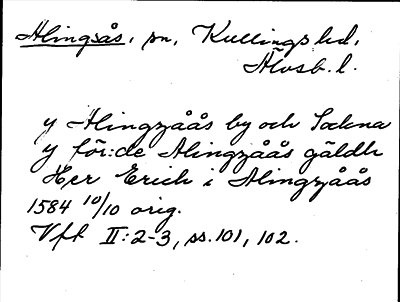 Alingsås, sn, Kullings hd,
Älvsb. l.
y Alingzåås by och Sockna
y för:de Alingzåås gäldh
Her Erich i Alingzåås
1584 10/10 orig.
Vft II:2-3, ss. 101, 102.